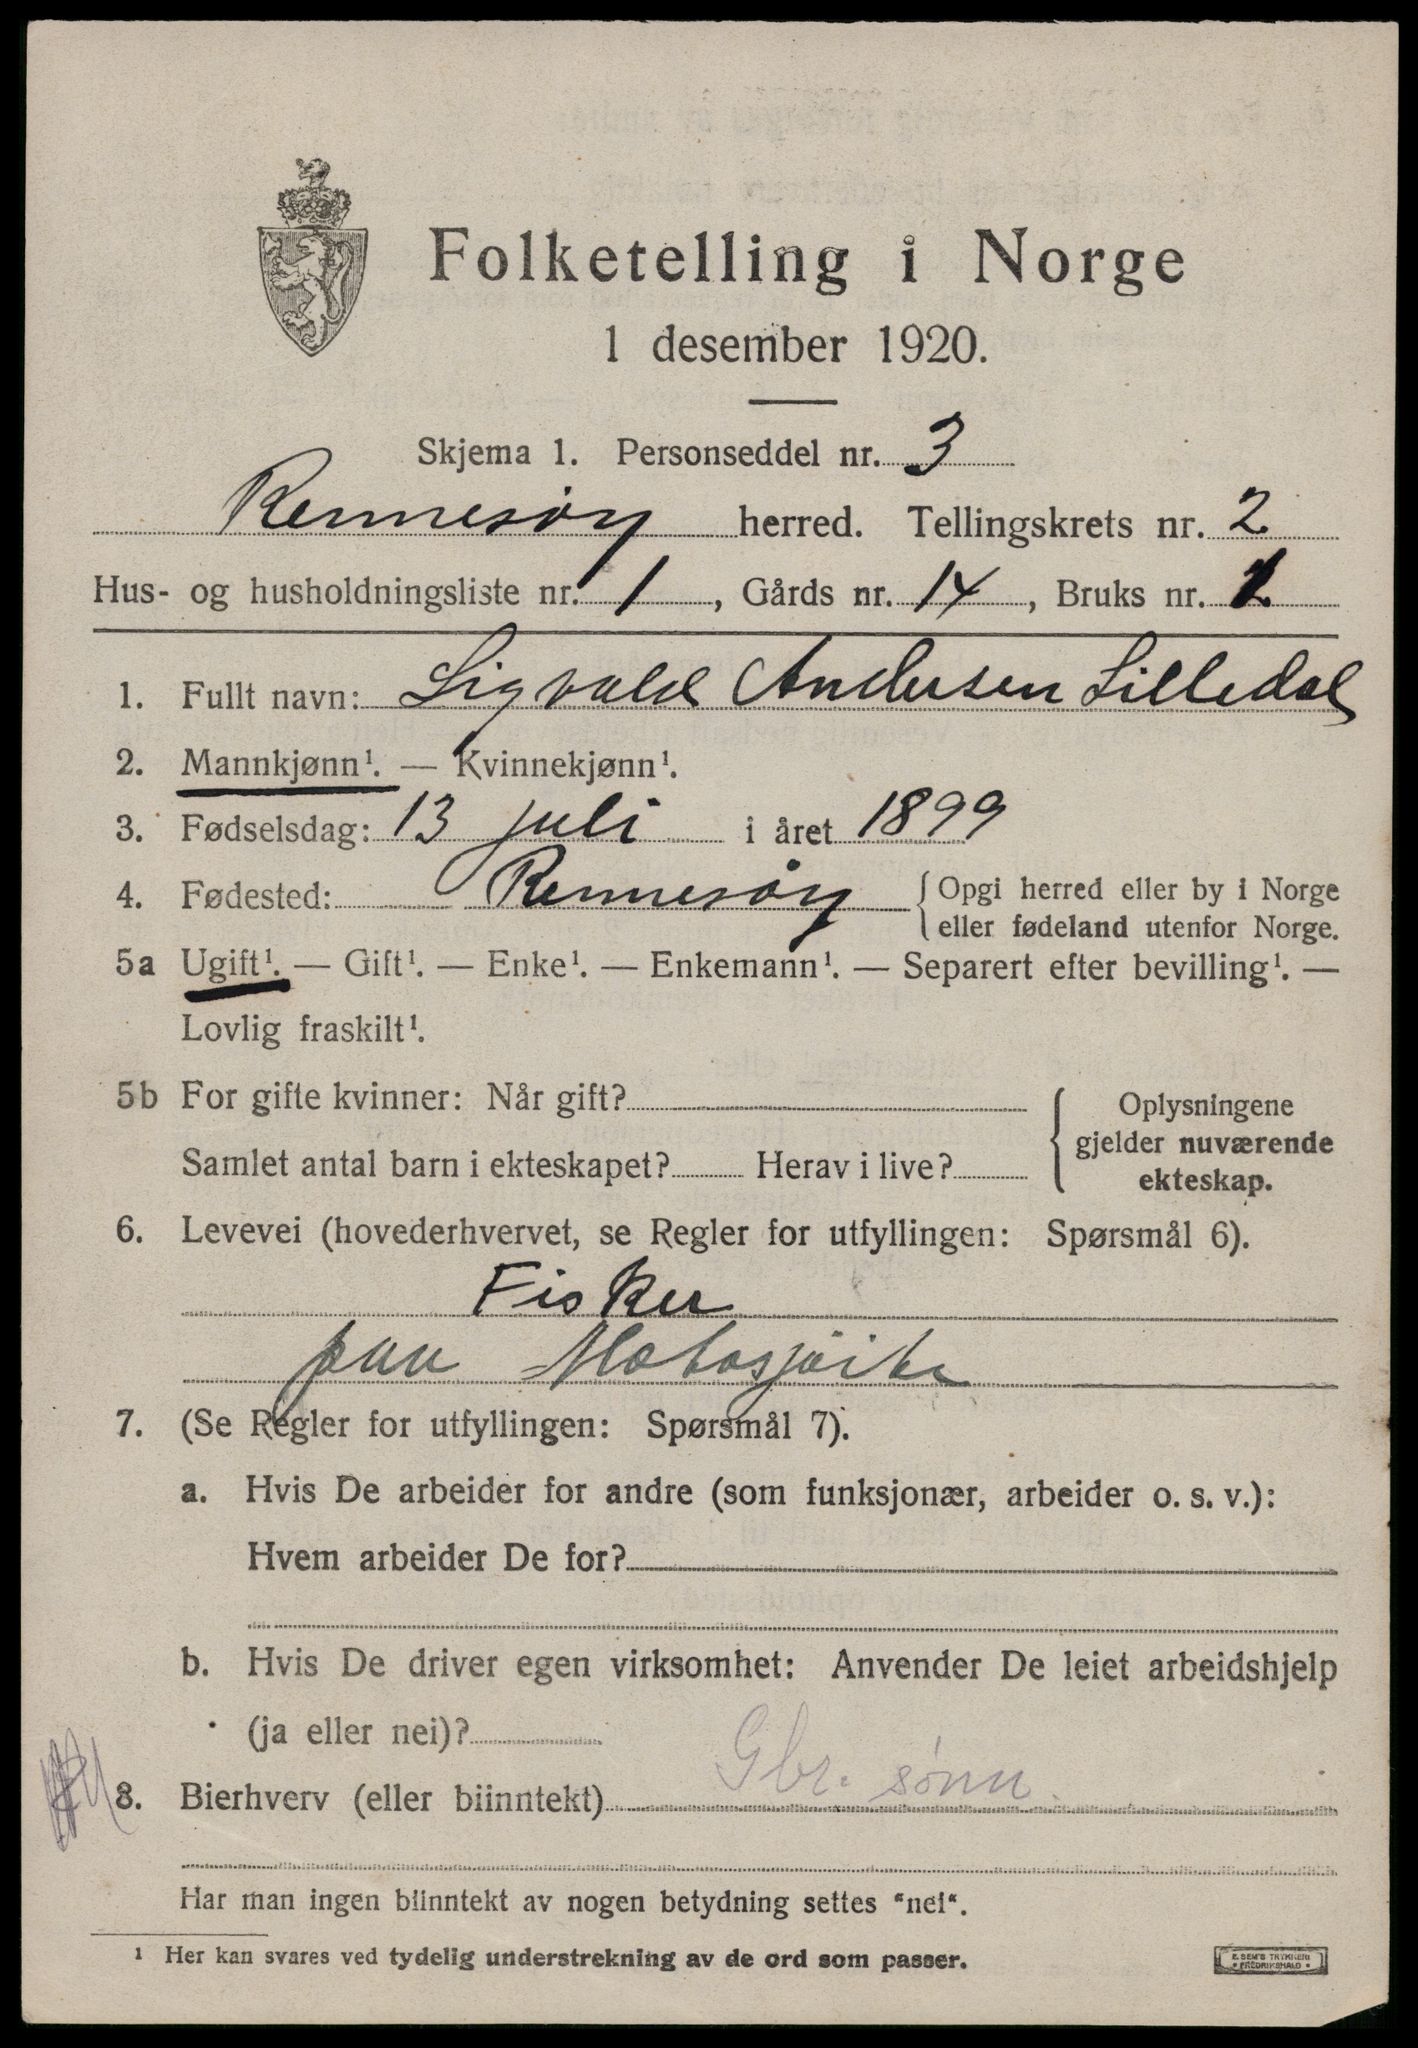 Folketelling i Norge
1 desember 1920.
Skjema 1. Personseddel nr. 3
Rennesøy herred. Tellingskrets nr. 2
Hus- og husholdningsliste nr. 1, Gårds nr. 14, Bruks nr. 1
1. Fullt navn: Sigvald Andersen Lilledal
2. Mannkjønn¹. — Kvinnekjønn¹.
3. Fødselsdag: 13 juli i året 1899
4. Fødested: Rennesøy { Opgi herred eller by i Norge
eller fødeland utenfor Norge.
5a Ugift¹. — Gift¹. — Enke¹. — Enkemann¹. — Separert efter bevilling¹. —
Lovlig fraskilt¹.
5b For gifte kvinner: Når gift?
Samlet antal barn i ekteskapet? Herav i live?
Oplysningene
gjelder nuværende
ekteskap.
6. Levevei (hovederhvervet, se Regler for utfyllingen: Spørsmål 6).
Fisker
paa
7. (Se Regler for utfyllingen: Spørsmål 7).
a. Hvis De arbeider for andre (som funksjonær, arbeider o. s. v.):
Hvem arbeider De for?
b. Hvis De driver egen virksomhet: Anvender De leiet arbeidshjelp
(ja eller nei)?
8. Bierhverv (eller biinntekt) Gbr. sønn.
Har man ingen biinntekt av nogen betydning settes "nei".
1 Her kan svares ved tydelig understrekning av de ord som passer.
E. SEM'S TRYKKERI
FREDRIKSHALD